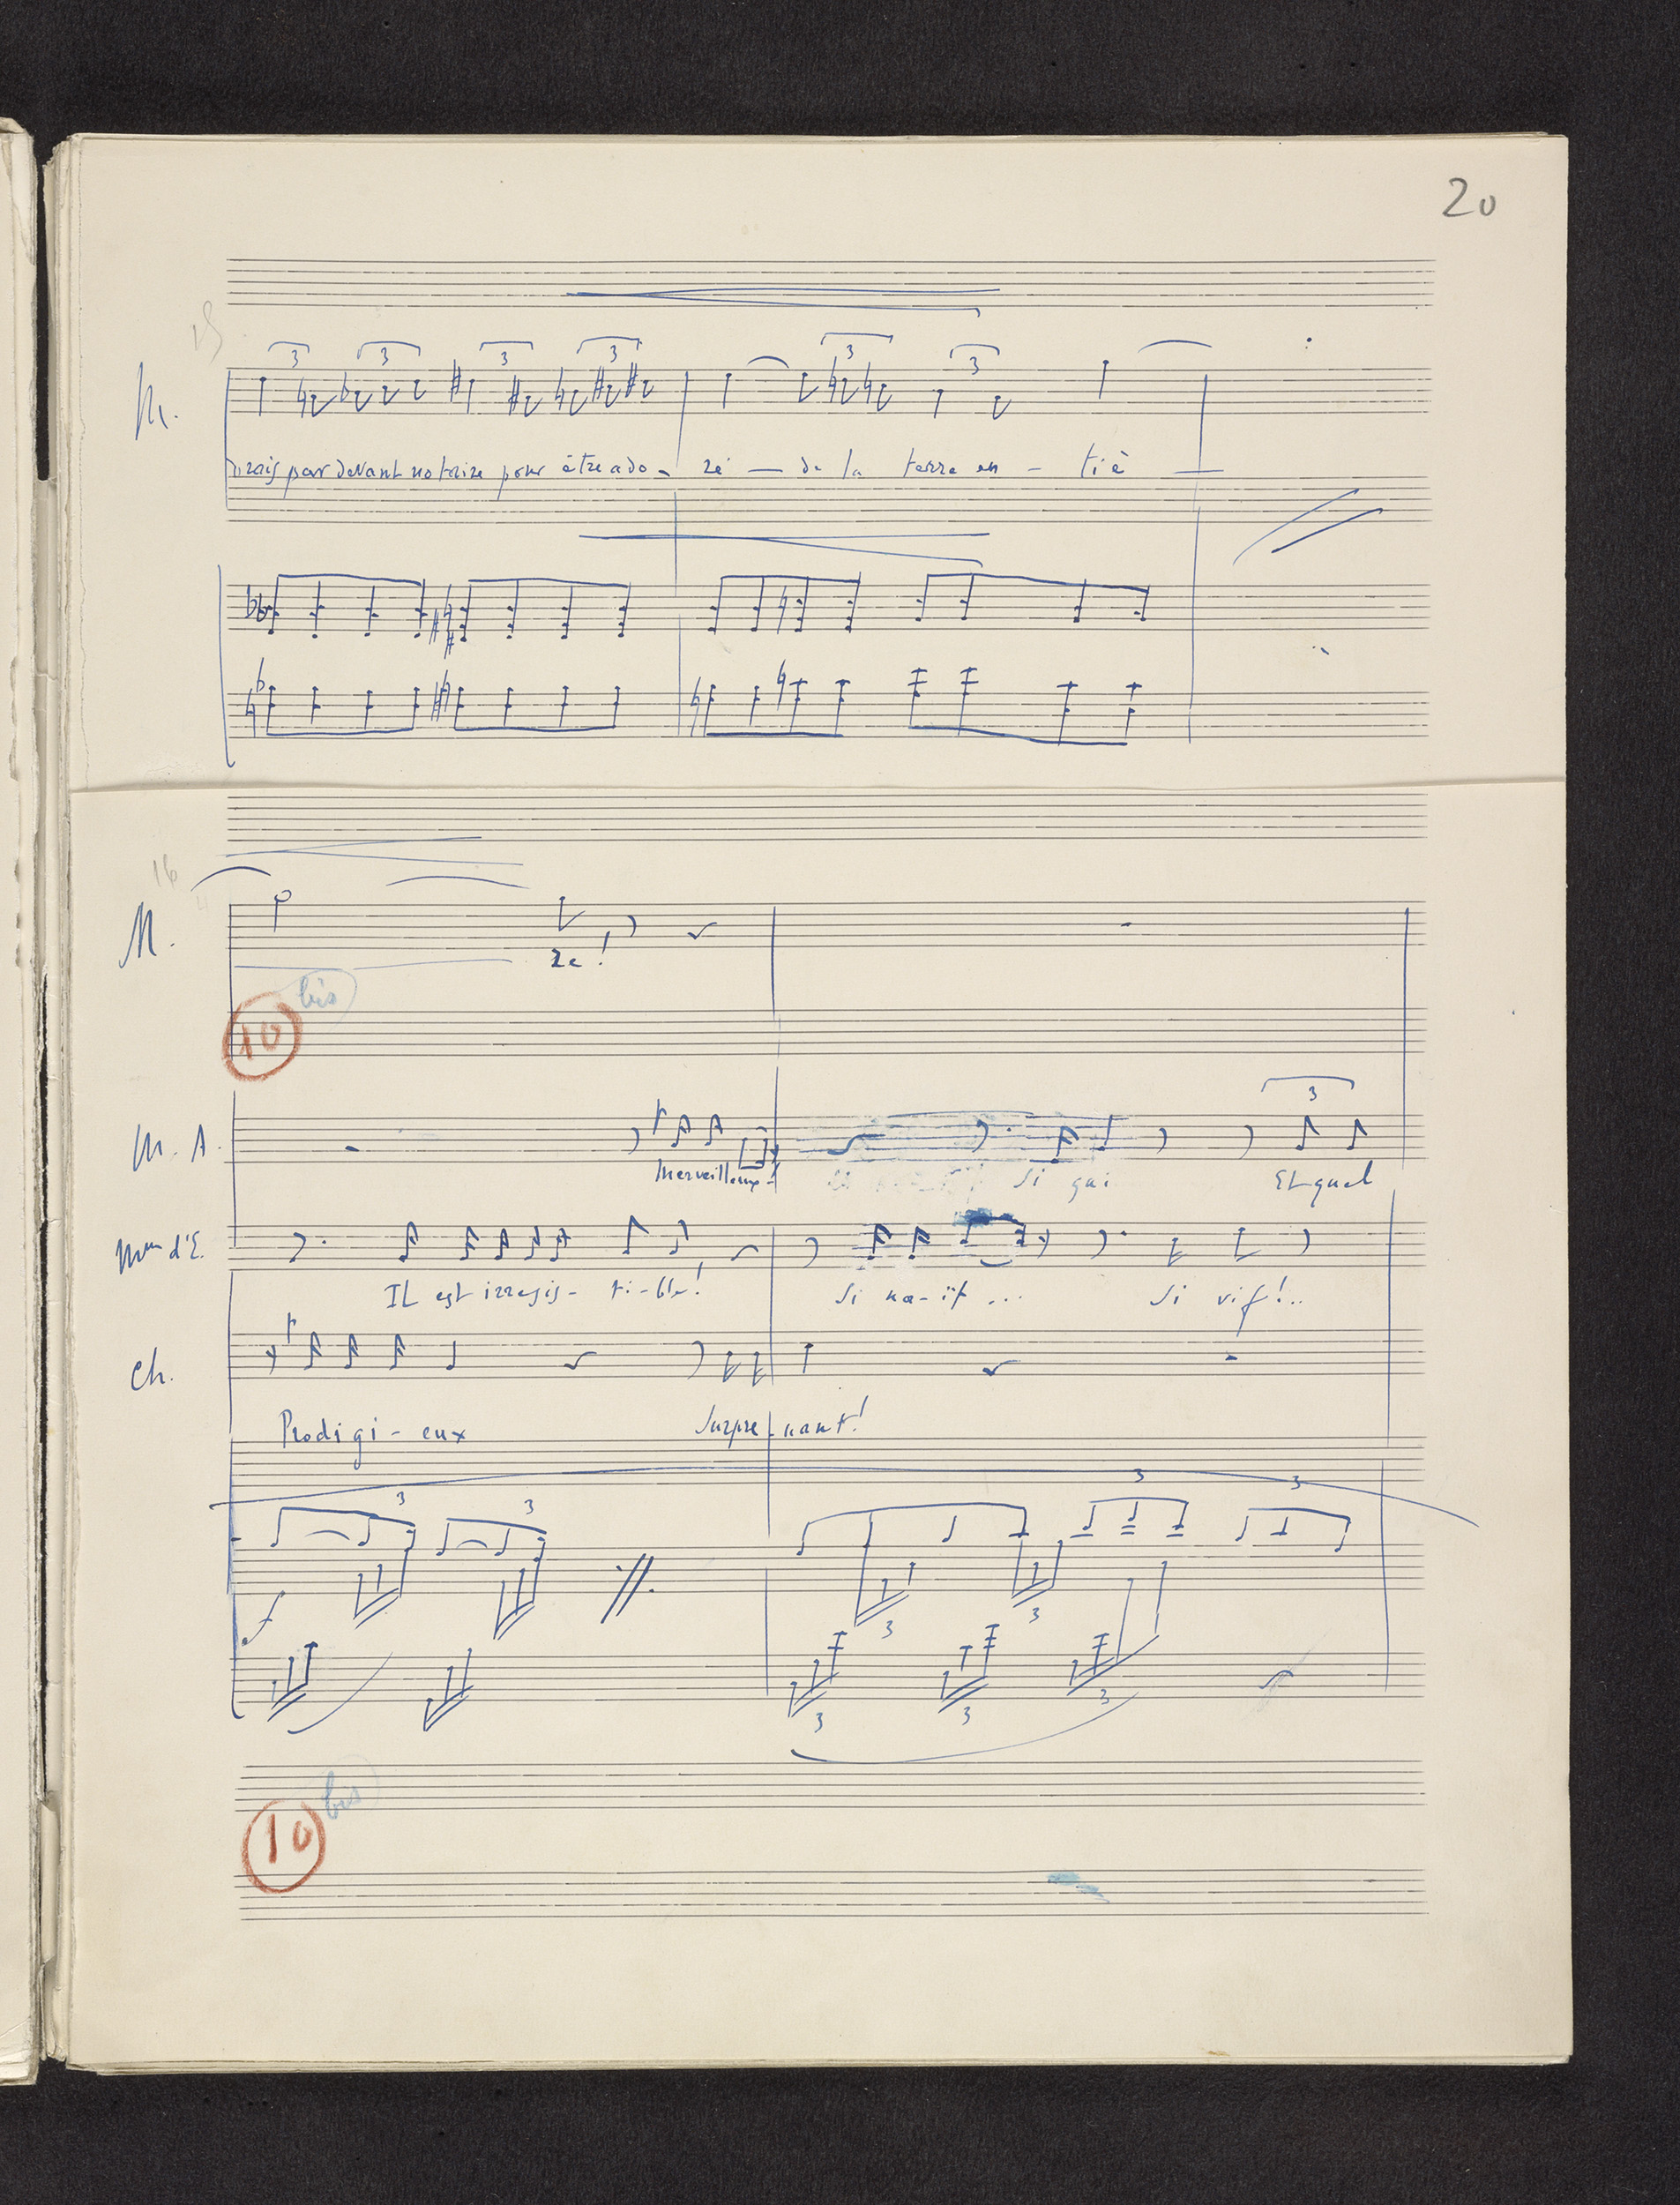 20
15
3 3 3 3 3 3
M.
drais par devant notaire pour être ado - ré — de la terre en - tiè —
16
M.
re !
10 bis
3
M. A.
Merveilleux ! Si gai Et quel
Mme d'E.
Il est irresis - ti - ble ! Si na - ïf ... Si vif ! ..
Ch.
Prodigi - eux Surpre - nant !
3 3 3 3
f
3 3
3 3 3
10 bis